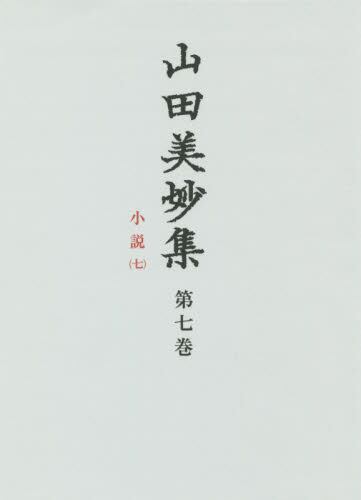 山田美妙集
第七巻
小説
(七)